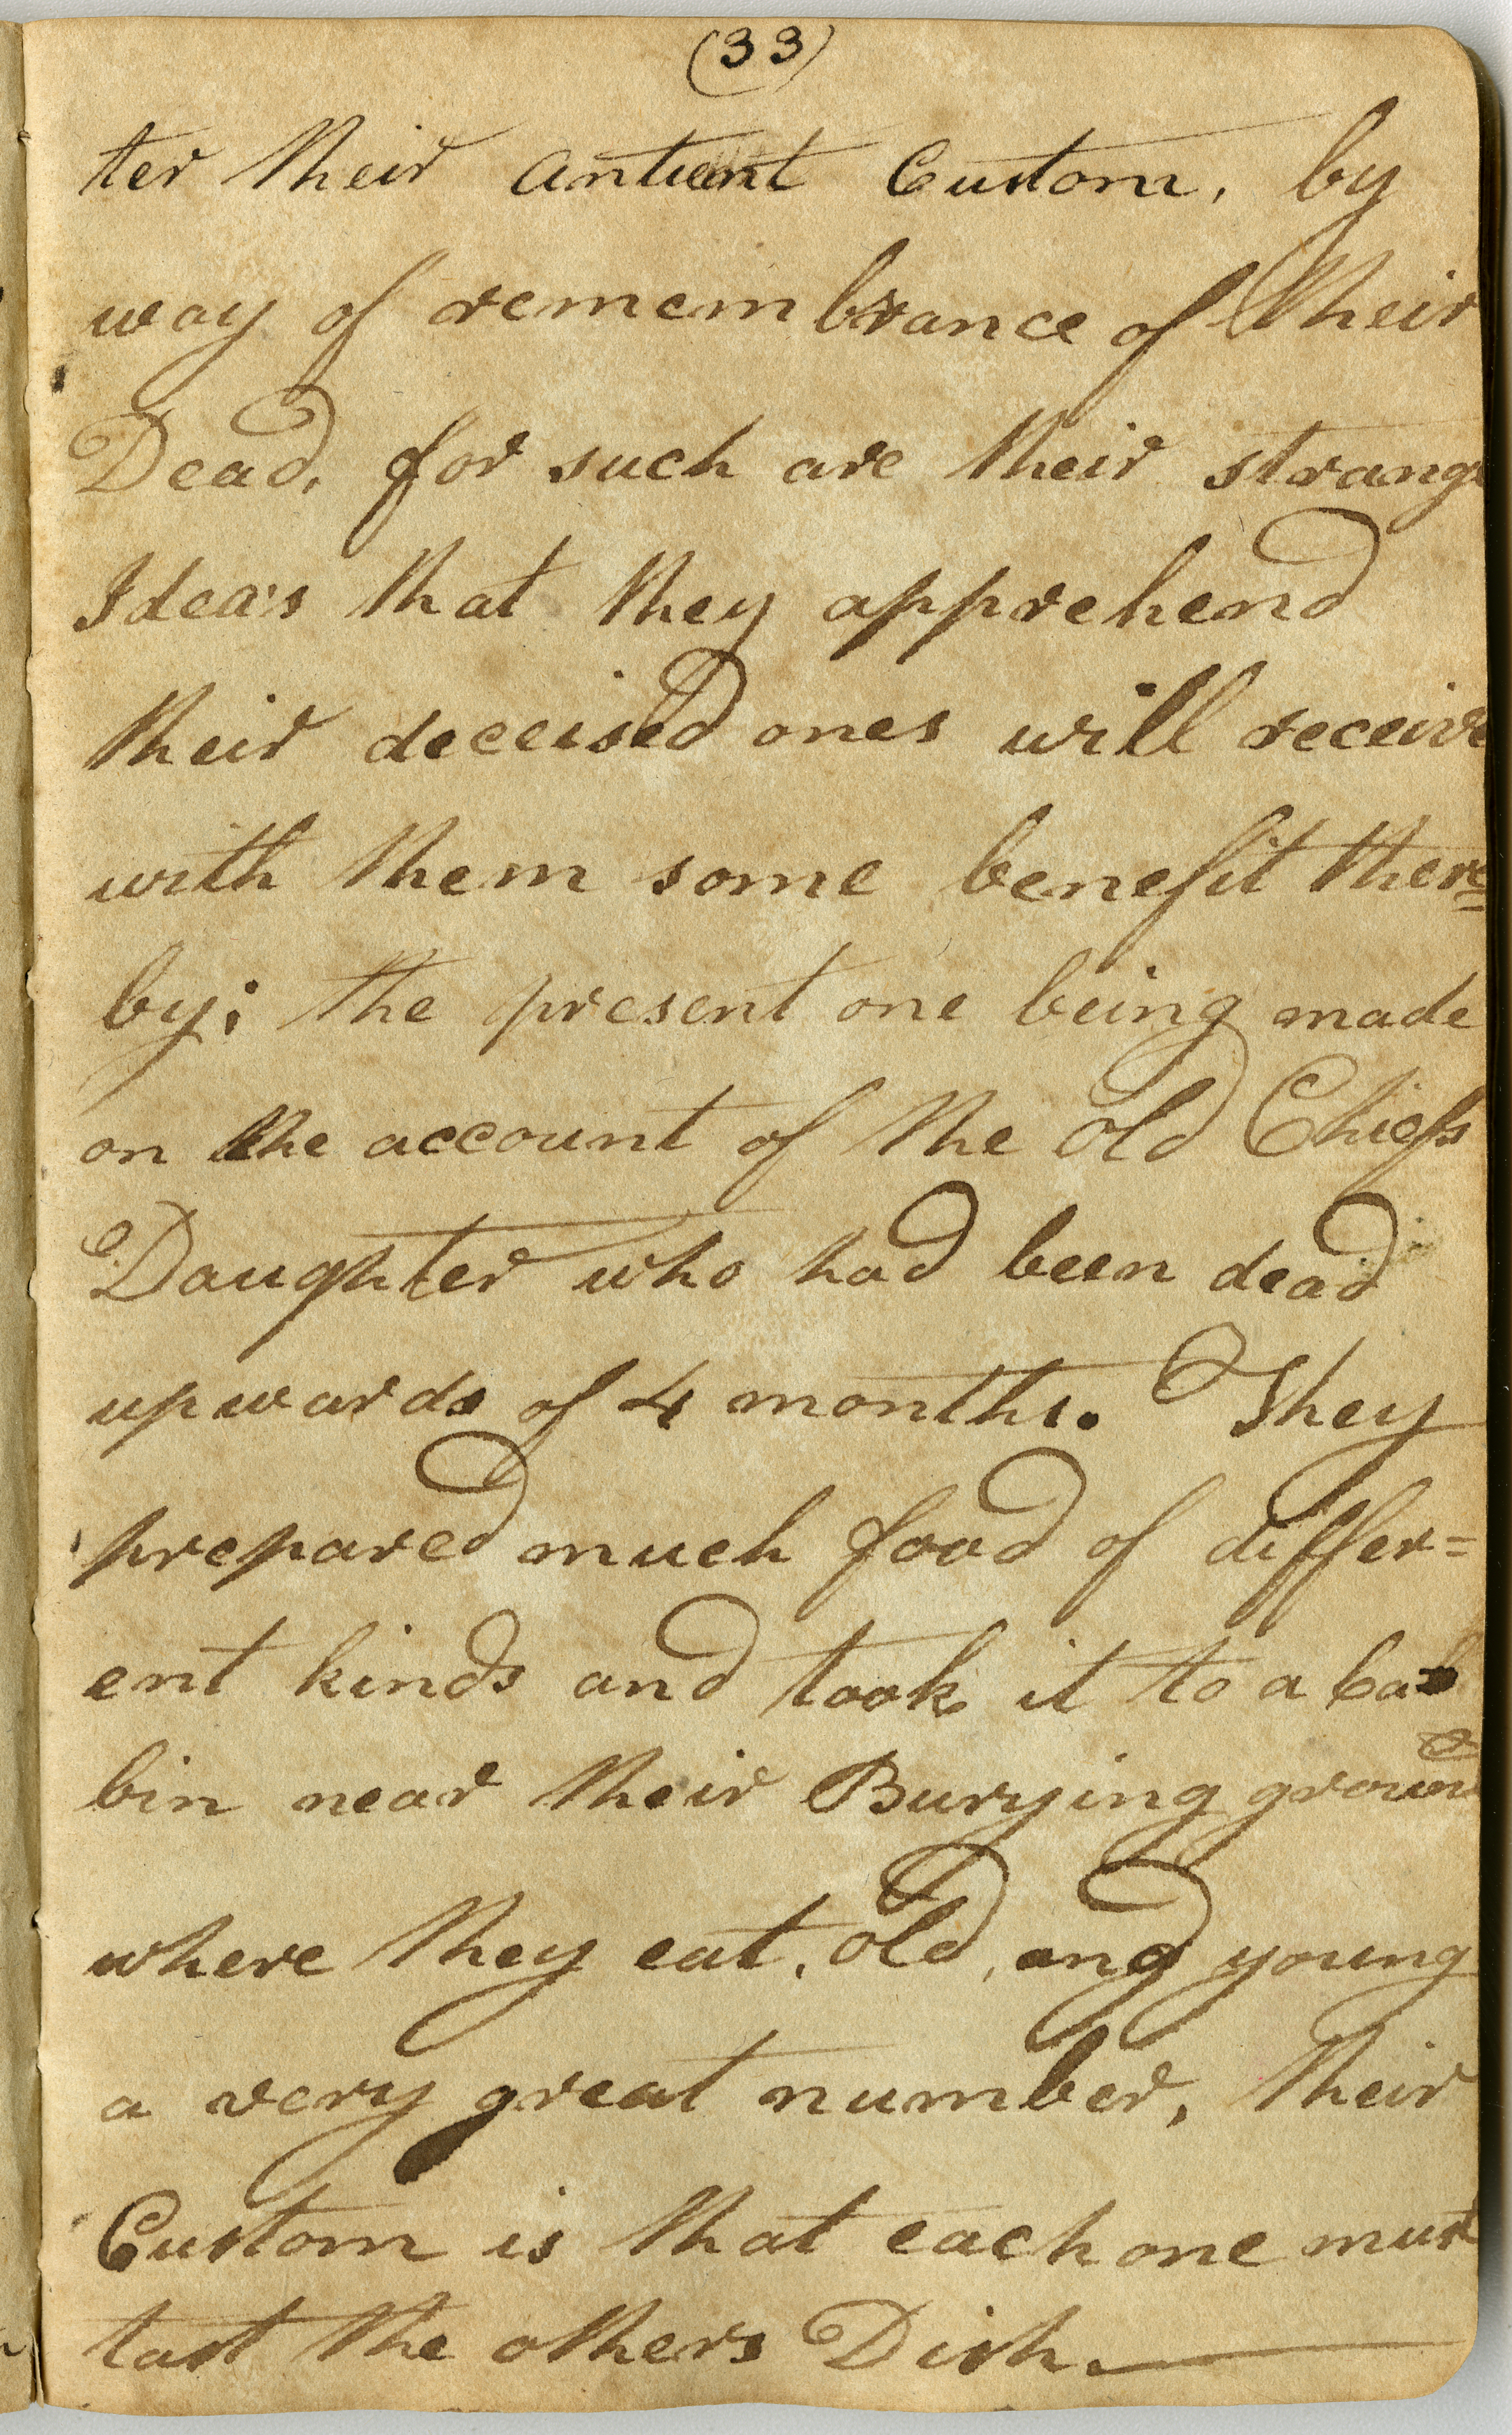 (33)
ter their antient Custom, by
way of remembrance of their
Dead, for such are their strange
Idea's that they apprehend
their deceised ones will receive
with them some benefit there=
by; the present one being made
on the account of the old Chiefs
Daughter who had been dead
upwards of 4 months. They
prepared much food of differ=
ent kinds and took it to a Ca=
bin near their Burying ground
where they eat, old, and young
a very great number, their
Custom is that each one must
tast the others Dish.